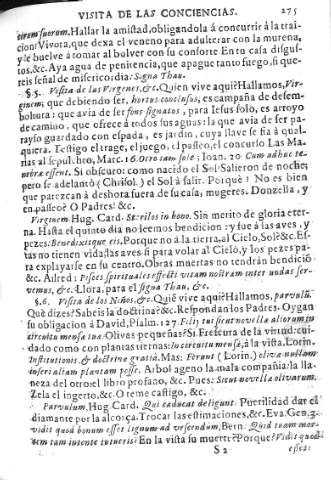 VISITA DE LAS CONCIENCIAS. 275
circm fuerum. Hallar la amistad, obligandola á concurrir á la trai-
cion: Vivora, que dexa el veneno para adulterar con la murena,
y le buelve á tomar al bolver con su consorte En tu casa disgus-
tos, &c. Aya agua de penitencia, que apague tanto fuego, si que-
reis señal de misericordia: Signa Thau.
§. 5. Visita de las Virgenes, &c. Quien vive aqui? Hallamos, Vir-
ginem; que debiendo ser, hortus conclusus, es campaña de desem-
boltura: que avia de ser fons signatus, para Jesus solo, es arroyo
de camino, que ofrece á todos sus aguas: la que avia de ser pa-
rayso guardado con espada, es jardin, cuya llave se fia á qual-
quiera. Testigo el trage, el juego, el passeo, el concurso Las Ma-
rias al sepulchro, Marc. 16. Orto iam sole; Ioan. 20 Cum adhuc te-
nebræ essent. Si obscuro: como nacido el Sol? Salieron de noche;
pero se adelantò (Chrisol.) el Sol á salir. Porque? No es bien
que parezcan à deshora fuera de su casa, mugeres. Donzella, y
en passeo? O Padres! &c.
Virginem. Hug. Card. Sterilis in bono. Sin merito de gloria eter-
na. Hasta el quinto dia no leemos bendicion: y fue à las aves, y
pezes: Benedixitque eis. Porque no à la tierra, al Cielo, Sol? &c. Es-
tas no tienen vida: las aves si para volar al Cielo, y los pezes pa-
ra explayarse en su centro. Obras muertas no tendrán bendicìó
&c. Ailred: Pisces spirituales effecti vitam nostram inter undas ser-
vemus, &c. Llora, para el signa Thau, &c.
§. 6. Visita de los Niños, &c. Quié vive aqui? Hallamos, parvulú.
Què dizes? Sabeis la doctrina? &c. Respondan los Padres. Oygan
su obligacion á David, Psalm. 127. Filij tui sicut novella olivarum in
circuitu mensæ tuæ: Olivas pequeñas? Si. Frescura de la virtud: cui-
dado como con plantas tiernas: In circuitu mensæ, á la vista. Lorin.
Institutionis, & doctrinæ gratiâ. Mas: Ferunt (Lorin.) olivæ nullam
inseri aliam plantam posse. Arbol ageno la mala compañia: la lla-
neza del otro: el libro profano, &c. Pues: Sicut novella olivarum.
Zela el ingerto, &c. O teme castigo, &c.
Parvulum, Hug Card. Qui caduca deligunt. Puerilidad dar el
diamante por la alcorça. Trocar las estimaciones, &c. Eva, Gen. 3.
vidit quod bonum esset lignum ad vescendum, Bern. Quid tuam mor-
tem tam intente intueris? En la vista su muerte? Porque? Vidit quod
S 2 esset